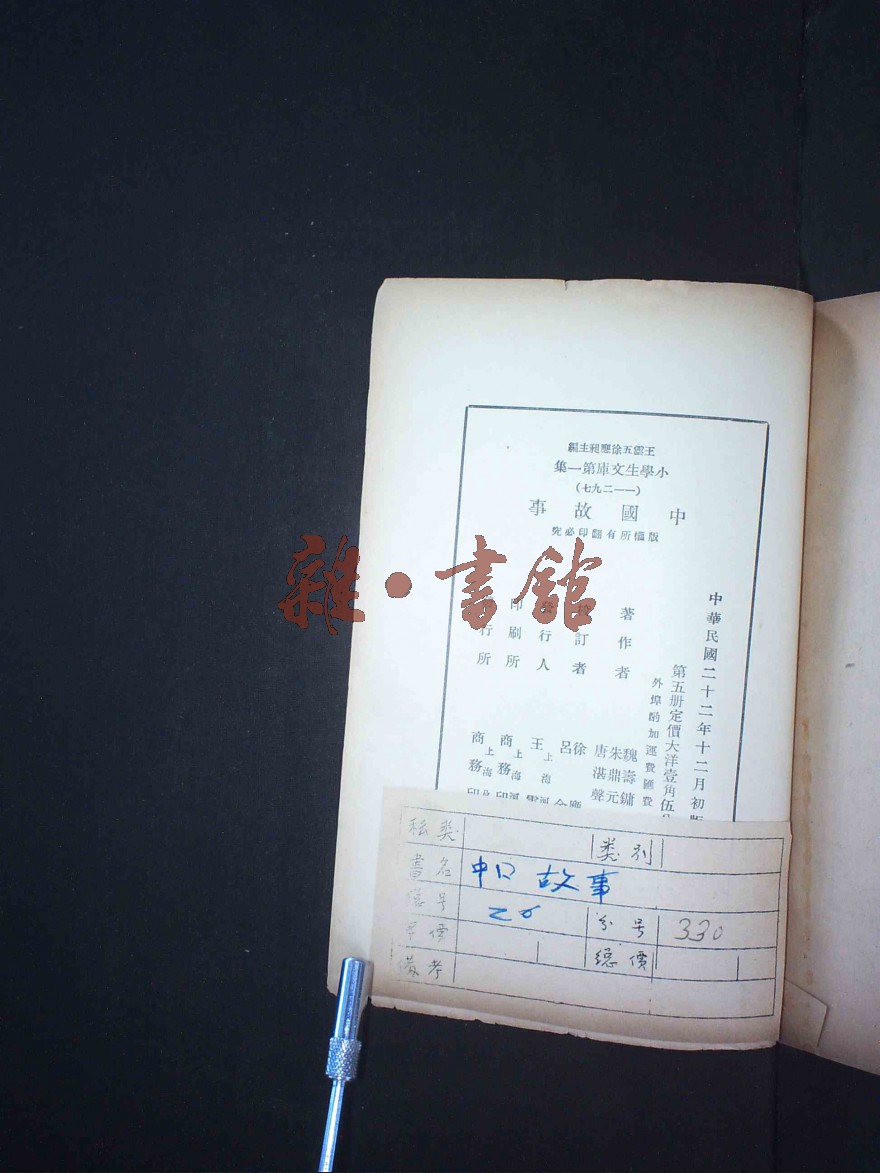 王雲五徐應昶主編
小學生文庫第一集
(一一二九七)
中國故事
版權所有翻印必究
中華民國二十二年十二月初版
第五册定價大洋壹角伍
外埠酌加運費匯費
著作者 魏壽鏞 朱鼎元 唐湛聲
校訂者 徐應 呂金
發行人 王雲 上海河
印刷所 商務印 上海河
發行所 商務印 上海
雜·書館
类别
書名 中口 故事
总号 26 分号 330
單價 總價
備考